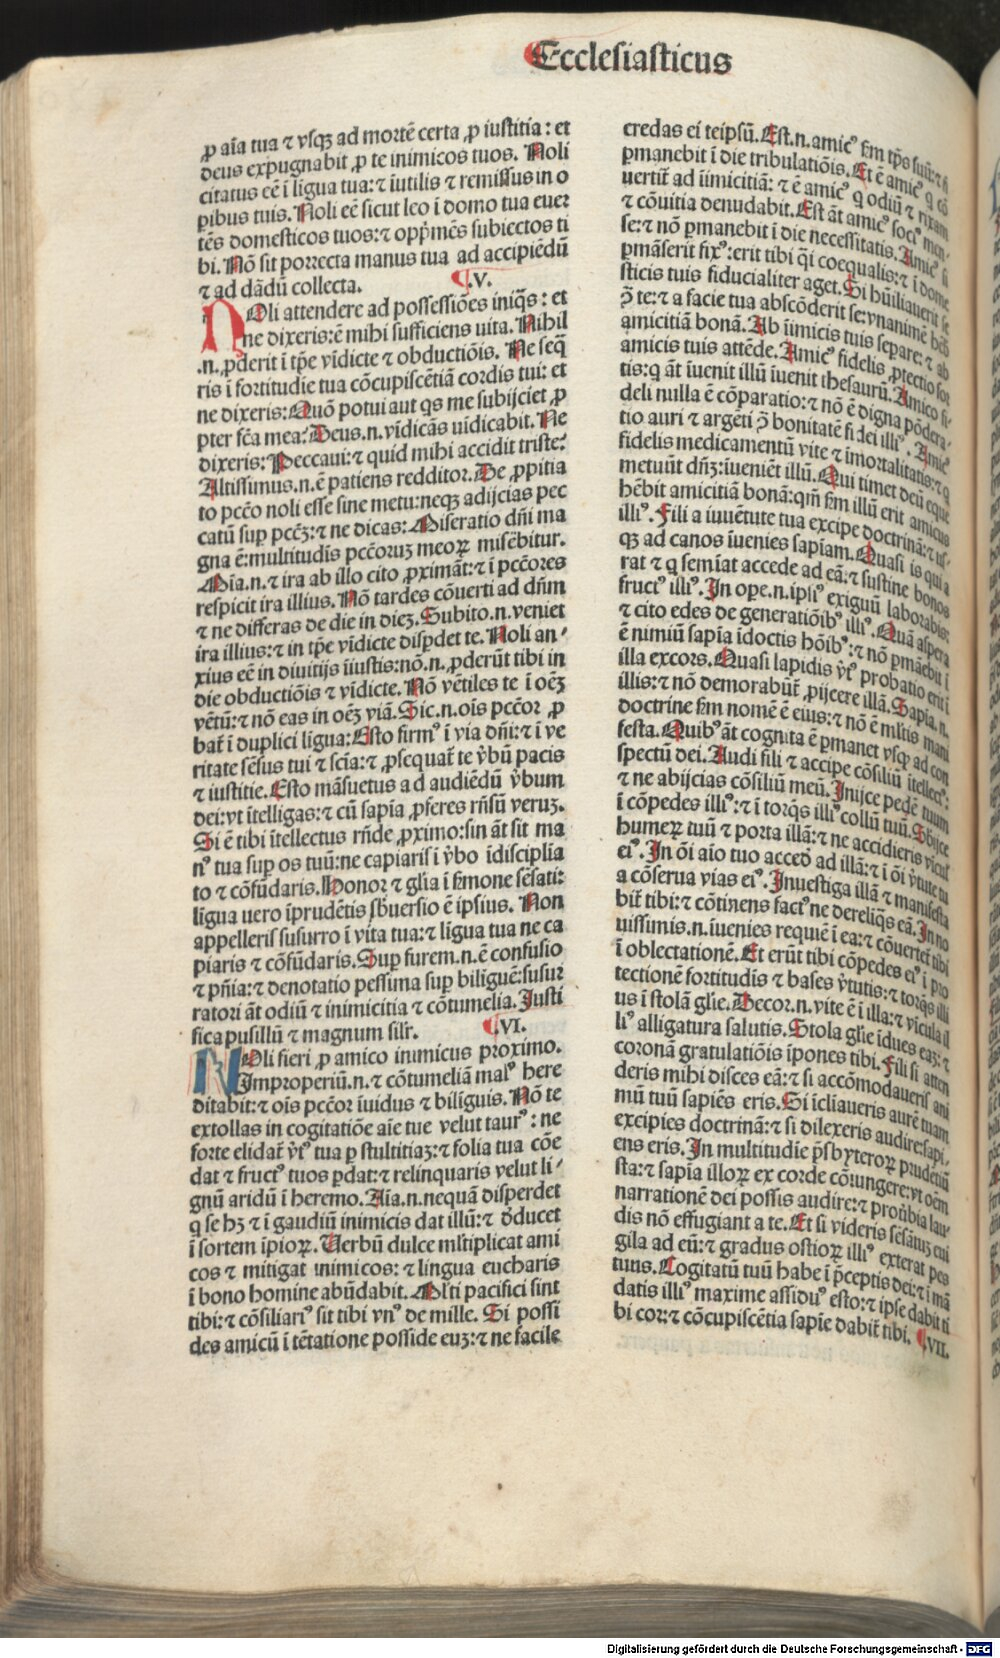 Ecclesiasticus
ꝓ aĩa tua ⁊ vsqꝫ ad mortē certa ꝓ iustitia : et
deus expugnabit ꝓ te inimicos tuos. Noli
citatus eē ĩ lĩgua tua:⁊ ĩutilis ⁊ remissus in o
ꝑibus tuis. Noli eē sicut leo ĩ domo tua euer
tēs domesticos tuos:⁊ opp̃mēs subiectos ti
bi. Nō sit porrecta manus tua ad accipiēdū
⁊ ad dādū collecta. .V.
NOli attendere ad possessiões iniq̃s : et
ne dixeris:ē mihi sufficiens uita. Nihil
.n. ꝓderit ĩ tꝑe vĩdicte ⁊ obductiõis. Ne seq̃
ris ĩ fortitudie tua cōcupiscētiā cordis tui: et
ne dixeris: Quõ potui aut qs me subijciet ꝓ
pter fc̃a mea: Deus.n. vĩdicãs uidicabit. Ne
dixeris: Peccaui:⁊ quid mihi accidit triste:
Altissimus.n. ē patiens redditor. De ꝓpitia
to pcc̃o noli esse sine metu:neqꝫ adijcias pec
catū suꝑ pcc̃ꝫ:⁊ ne dicas: Miseratio dñi ma
gna ē:multitudĩs pcc̃oruꝫ meoꝝ misēbitur.
Mia.n. ⁊ ira ab illo cito ꝓximãt:⁊ ĩ pcc̃ores
respicit ira illius. Nō tardes cõuerti ad dñm
⁊ ne differas de die in dieꝫ. Subito.n. veniet
ira illius:⁊ in tꝑe vĩdicte disꝑdet te. Noli an⸗
xius eē in diuitijs ĩiustis:nõ.n. ꝓderūt tibi in
die obductiõis ⁊ vĩdicte. Nō vētiles te ĩ oēꝫ
vētū:⁊ nõ eas in oēꝫ viã. Sic.n. ois pcc̃or ꝓ
bat̃ ĩ duplici lĩgua: Esto firmꝰ ĩ via dñi:⁊ ĩ ve
ritate sēsus tui ⁊ scĩa:⁊ ꝓsequat̃ te v̾bū pacis
⁊ iustitie. Esto mãsuetus ad audiēdū v̾bum
dei:vt ĩtelligas:⁊ cū sapĩa ꝓferes rñsū veruꝫ.
Si ē tibi ĩtellectus rñde ꝓximo:sin ãt sit ma
nꝰ tua suꝑ os tuū:ne capiaris ĩ v̾bo ĩdisciplĩa
to ⁊ cõfūdaris. Honor ⁊ glĩa ĩ ẜmone sēsati:
lĩgua uero ĩprudētis sb̾uersio ē ipsius. Non
appelleris susurro ĩ vita tua:⁊ lĩgua tua ne ca
piaris ⁊ cõfūdaris. Suꝑ furem.n. ē confusio
⁊ pñia:⁊ denotatio pessima suꝑ biliguē:susur
ratori ãt odiū ⁊ inimicitia ⁊ cõtumelia. Justi
fica pusillū ⁊ magnum silr̃. .VI.
NOli fieri ꝓ amico inimicus proximo.
Improperiū.n. ⁊ cõtumeliã malꝰ here
ditabit:⁊ oĩs pcc̃or ĩuidus ⁊ biliguis. Nō te
extollas in cogitatiõe aĩe tue velut taurꝰ : ne
forte elidat̃ v̾tꝰ tua ꝑ stultitiaꝫ:⁊ folia tua cõe
dat ⁊ fructꝰ tuos ꝑdat:⁊ relinquaris velut li⸗
gnū aridū ĩ heremo. Aĩa.n. nequã disperdet
q̃ se hꝫ ⁊ ĩ gaudiū inimicis dat illū:⁊ d̾ducet
ĩ sortem ĩpioꝝ. Verbū dulce ml̃tiplicat ami
cos ⁊ mitigat inimicos:⁊ lingua eucharis
ĩ bono homine abũdabit. Ml̃ti pacifici sint
tibi:⁊ cõsiliariꝰ sit tibi vnꝰ de mille. Si possi
des amicū ĩ tētatione posside euꝫ:⁊ ne facile
credas ei teipsū. Est.n. amicꝰ ẜm tp̃s suū:⁊ ñ
ꝑmanebit ĩ die tribulatiõis. Et ē amicꝰ q̃ cõ
uertit̃ ad ĩimicitiã: ⁊ ē amicꝰ q̃ odiū ⁊ rixam
⁊ cõuitia denudabit. Est ãt amicꝰ sociꝰ men⸗
se:⁊ nõ ꝑmanebit ĩ die necessitatis. Amicꝰ si
ꝑmãserit fixꝰ:erit tibi q̃i coequalis:⁊ ĩ dome
sticis tuis fiducialiter aget. Si hũiliauerit se
ꝯ̃ te:⁊ a facie tua abscõderit se:vnanimē heb̾
amicitiã bonã. Ab ĩimicis tuis seꝑare:⁊ ab
amicis tuis attēde. Amicꝰ fidelis ꝓtectio for
tis:q̃ ãt ĩuenit illū ĩuenit thesaurū. Amico fi⸗
deli nulla ē cõparatio:⁊ nõ ē digna põdera⸗
tio auri ⁊ argēti ꝯ̃ bonitatē fidei illiꝰ. Amicꝰ
fidelis medicamentū vite ⁊ imortalitatis:⁊ q̃
metuūt dñꝫ:ĩueniēt illū. Qui timet deū eque
hēbit amicitiã bonã:qm̃ ẜm illū erit amicus
illiꝰ. Fili a iuuētute tua excipe doctrinã:⁊ us⸗
qꝫ ad canos ĩuenies sapĩam. Quasi is qui a
rat ⁊ q̃ semĩat accede ad eã:⁊ sustine bonos
fructꝰ illiꝰ. In oꝑe.n. ipsiꝰ exiguū laborabis:
⁊ cito edes de generatiõibꝰ illiꝰ. Quã aspera
ē nimiū sapĩa ĩdoctis hõibꝰ:⁊ nõ ꝑmãebit ĩ
illa excors. Quasi lapidis v̾tꝰ probatio erit ĩ
illis:⁊ nõ demorabūt̃ ꝓijcere illã. Sapĩa.n.
doctrine ẜm nomē ē eius:⁊ nõ ē ml̃tis mani
festa. Quibꝰ ãt cognita ē ꝑmanet vsqꝫ ad con
spectū dei. Audi fili ⁊ accipe cõsiliū ĩtellectꝰ:
⁊ ne abijcias cõsiliū meū. Injice pedē tuum
ĩ cõpedes illiꝰ:⁊ ĩ torq̃s illiꝰ collū tuū. Sb̾ijce
humeꝝ tuū ⁊ porta illã:⁊ ne accidieris vĩcul̾
eiꝰ. In õi aĩo tuo acced̾ ad illã:⁊ ĩ õi v̾tute tu
a cõserua vias eiꝰ. Inuestiga illã ⁊ manifesta
bit̃ tibi:⁊ cõtinens factꝰ ne dereliq̃s eã. In no
uissimis.n. ĩuenies requiē ĩ ea:⁊ cõuertet̃ tibi
ĩ oblectationē. Et erūt tibi cõpedes eiꝰ ĩ pro
tectionē fortitudis ⁊ bases v̾tutis:⁊ torq̃s illi
us ĩ stolã glĩe. Decor.n. vite ē ĩ illa:⁊ vĩcula il
liꝰ alligatura salutis. Stola glĩe ĩdues eaꝫ:⁊
coronã gratulatiõis ĩpones tibi. Fili si atten
deris mihi disces eã:⁊ si accõmodaueris ani
mū tuū sapiēs eris. Si ĩcliaueris aurē tuam
excipies doctrinã:⁊ si dilexeris audire:sapi⸗
ens eris. In multitudie p̃sbyteroꝝ prudētiū
sta:⁊ sapĩa illoꝝ ex corde cõiungere:vt oēm
narrationē dei possis audire:⁊ prou̾bia lau⸗
dis nõ effugiant a te. Et si videris sēsatuꝫ eui
gila ad eū:⁊ gradus ostioꝝ illiꝰ exterat pes
tuus. Cogitatū tuū habe ĩ p̃ceptis dei:⁊ ĩ mã
datis illiꝰ maxime assiduꝰ esto:⁊ ipse dabit ti
bi cor:⁊ cõcupiscētia sapĩe dabit̃ tibi. .VII.
Digitalisierung gefördert durch die Deutsche Forschungsgemeinschaft - DFG